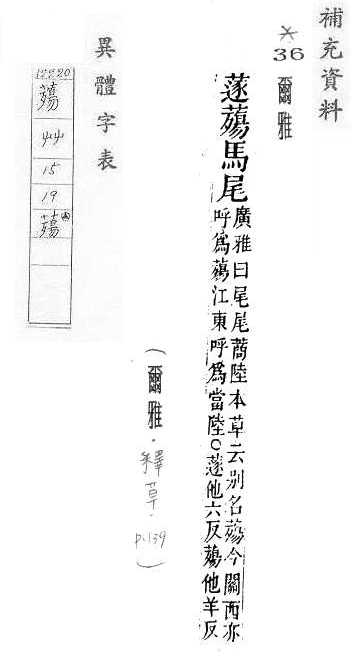 補充資料
*36 爾雅
蓫薚馬尾 廣雅曰尾尾蔏陸本草云别名薚今關西亦
呼爲薚江東呼爲當陸○蓫他六反薚他羊反
(爾雅．釋草．p.139)
異體字表
薚
艸
15
19
薚